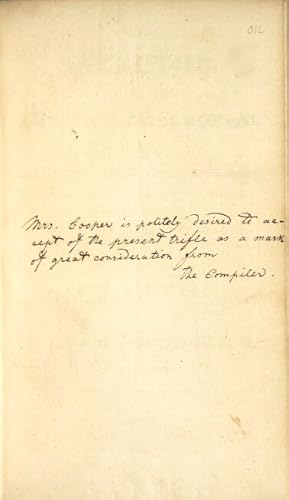 016
Mrs. Cooper is politely desired to ac-
cept of the present trifle as a mark
of great consideration from
the Compiler.